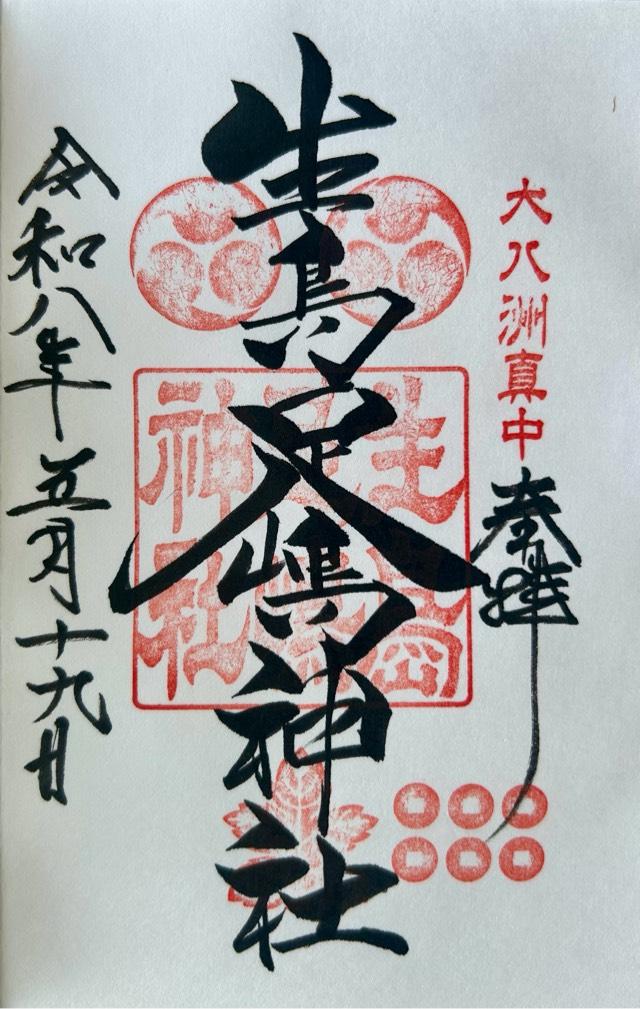 大八洲真中
奉拝
生島足嶋神社
生島足嶋神社
令和八年五月十九日